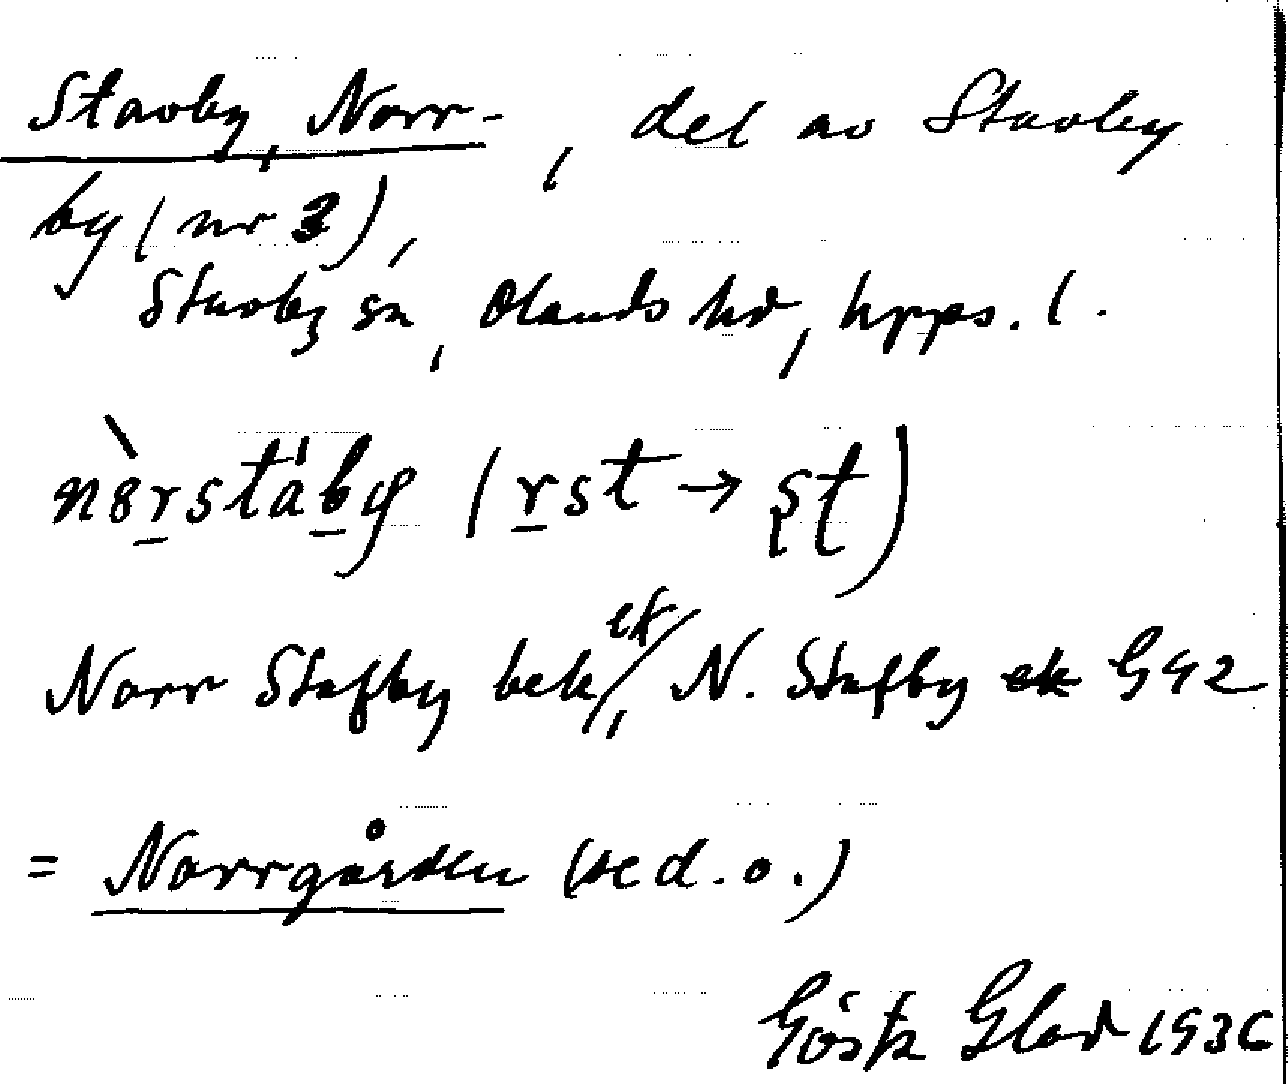 Stavby, Norr-, del av Stavby
by (nr 3),
Stavby sn, Olands hd, Upps. l.
nòrstáby (rst → şţ)
Norr Stafby bek, ek N. Stafby G42
= Norrgården (se d. o.)
Gösta Glad 1936